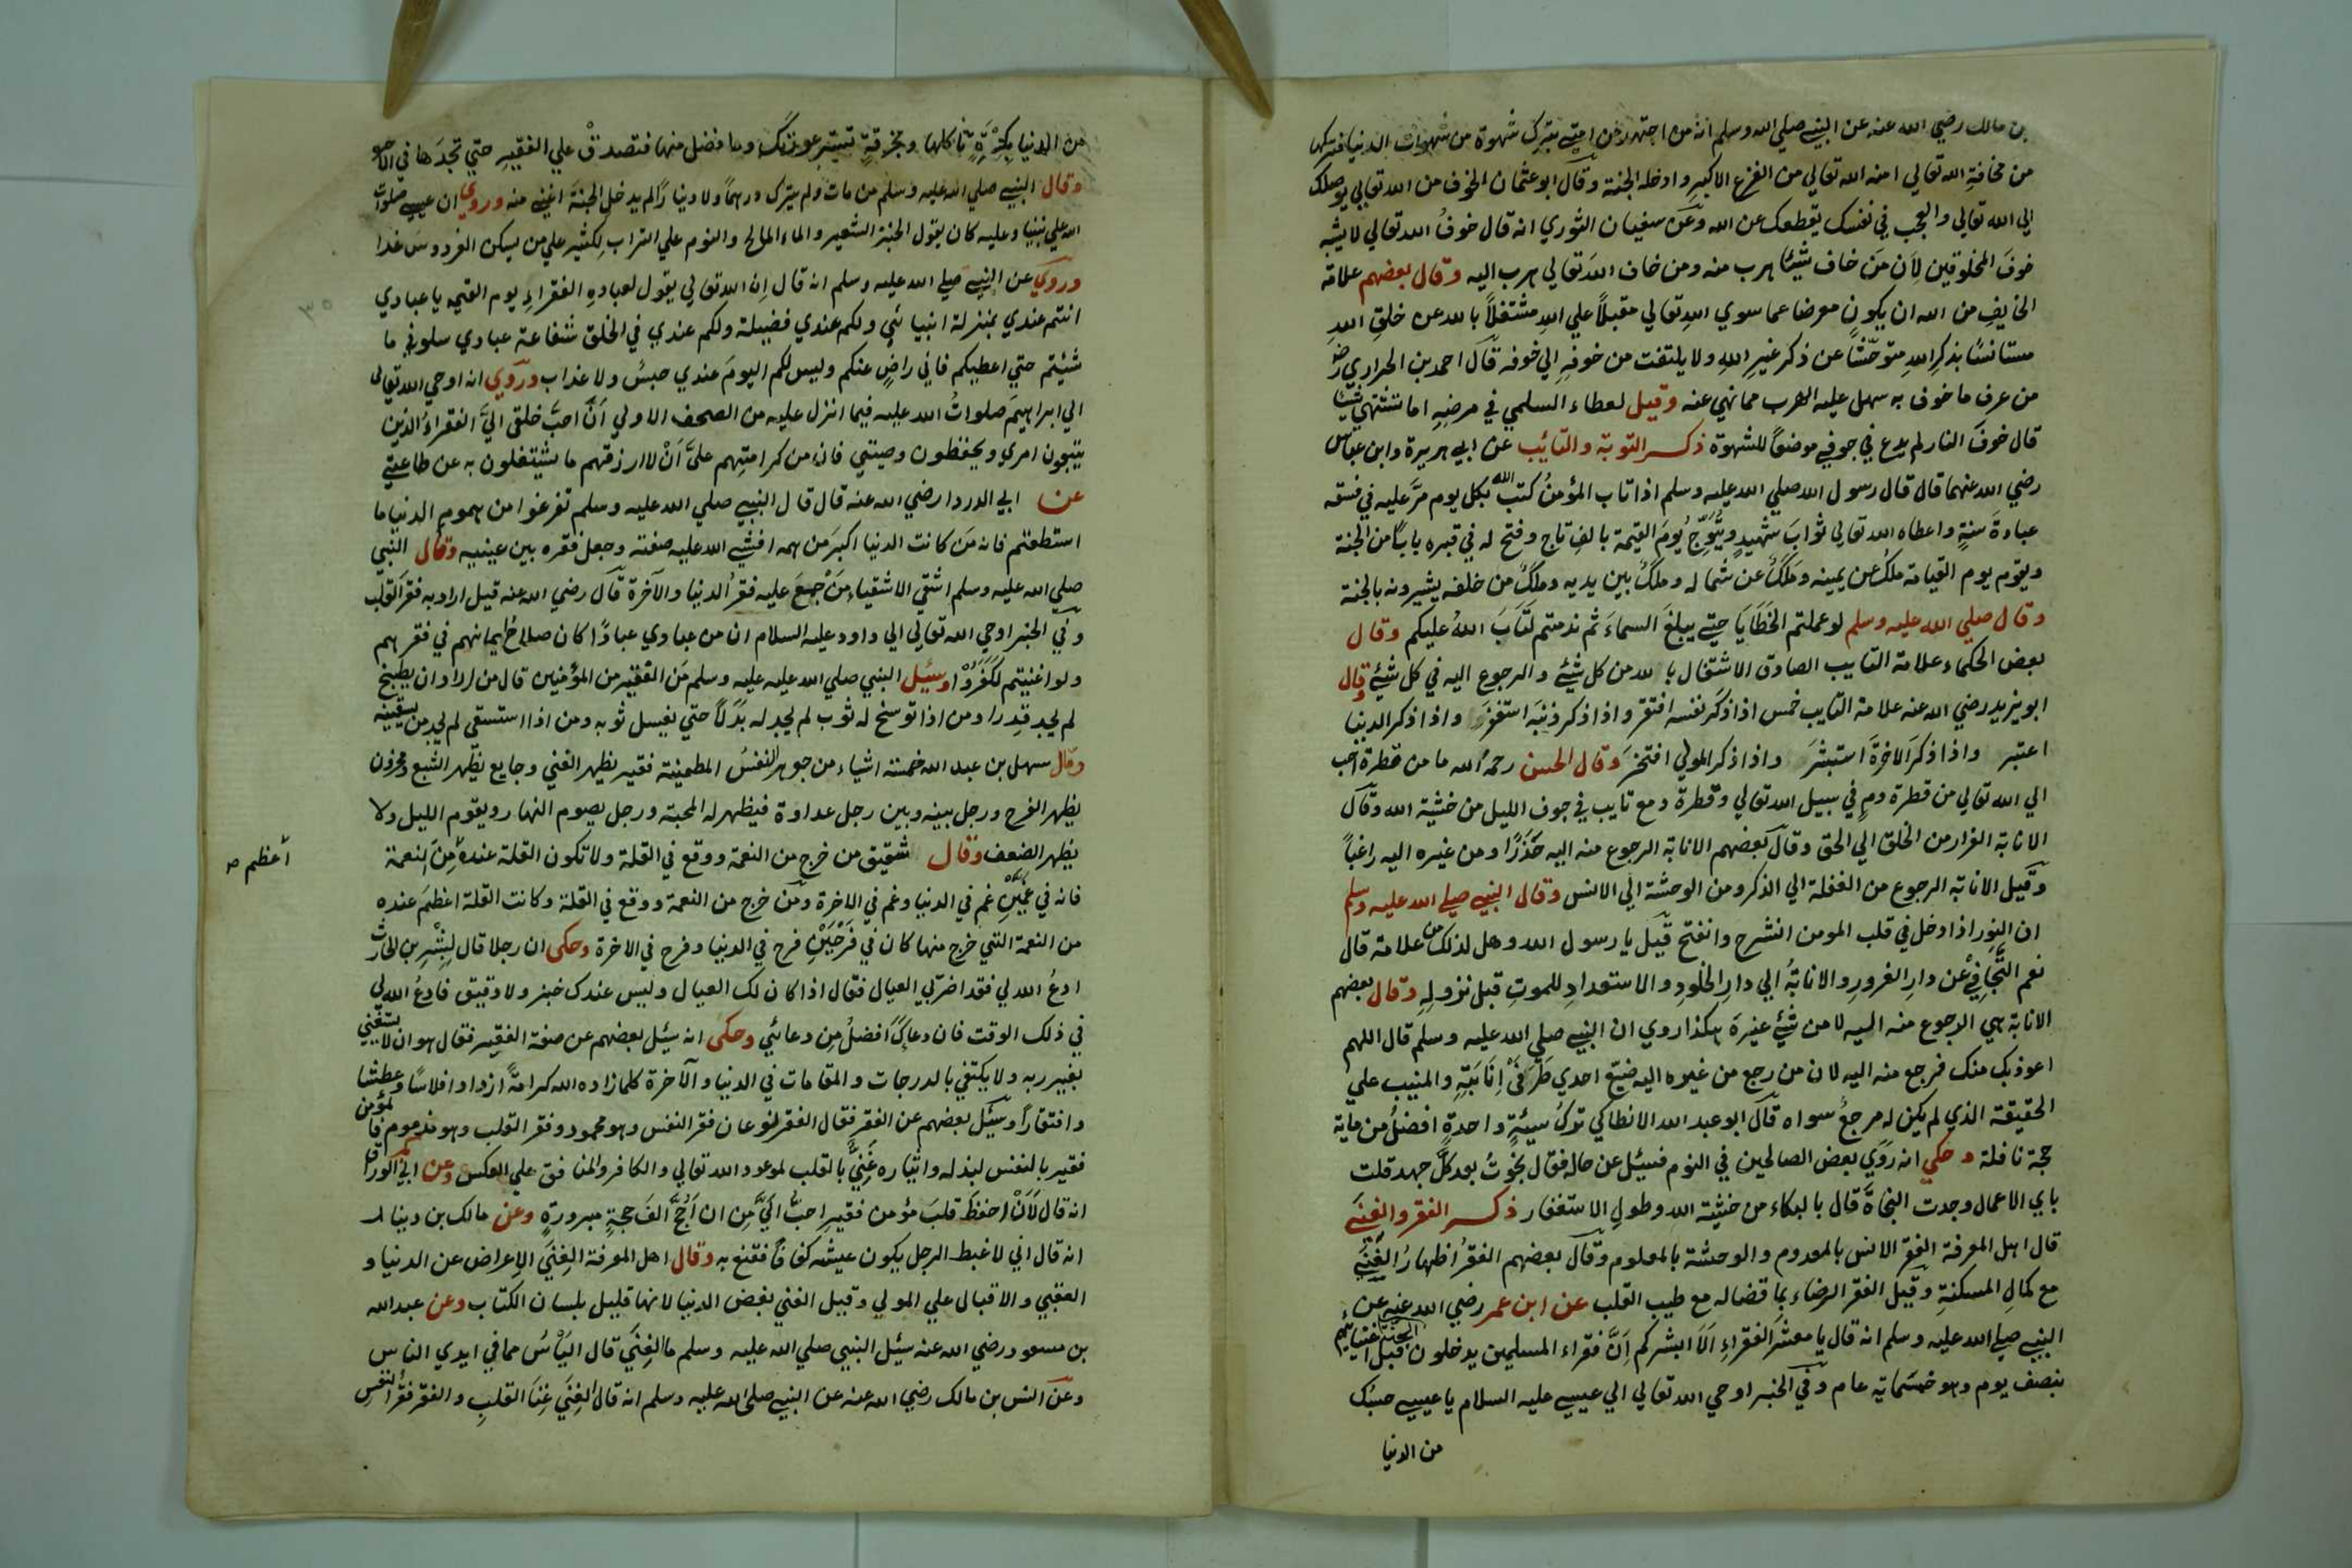 بن مالك رضي الله عنه عن النبي صلي الله وسلم انه من اجتهد من امتي بترك شهوة من شهوات الدنيا فتركها
من مخافة الله تعالي امنه الله تعالي من الفزع الاكبر وادخله الجنة وقال ابو عثمان الخوف من الله تعالي يوصلك
الي الله تعالي والعجب في نفسك يقطعك عن الله وعن سفيان الثوري انه قال خوف الله تعالي لا يشبه
خوف المخلوقين لأن من خاف شيئا هرب منه ومن خاف الله تعالي هرب اليه وقال بعضهم علامة
الخايف من الله ان يكون معرضا عما سوي الله تعالي مقبلاً علي الله مشتغلاً بالله عن خلق الله
مستانسًا بذكر الله متوحّشًا عن ذكر غير الله ولا يلتفت من خوفه الي خوفه قال احمد بن الحواري رض
من عرف ما خوف به سهل عليه الهرب مما نهي عنه وقيل لعطاء السلمي في مرضه اما تشتهي شيئا
قال خوف النار لم يدع في جوفي موضعًا للشهوة ذكر التوبة والتائب عن ابي هريرة وابن عباس
رضي الله عنهما قال قال رسول الله صلي الله عليه وسلم اذا تاب المؤمن كتب الله بكل يوم مرّ عليه في فسقه
عبادة سنةٍ واعطاه الله تعالي ثواب شهيدٍ ويُتَوّجُ يوم القيمة بالف تاج وفتح له في قبره بابًا من الجنة
ويقوم يوم القيامة ملكٌ عن يمينه وملكٌ عن شماله وملكٌ بين يديه وملكٌ من خلفه يبشرونه بالجنة
وقال صلي الله عليه وسلم لو عملتم الخَطَايَا حتي يبلغ السماء ثم ندمتم لَتَابَ الله عليكم وقال
بعض الحكماء علامة التايب الصادق الاشتغال بالله من كل شيئ والرجوع اليه في كل شيئ وقال
ابو يزيد رضي الله عنه علامة التايب خمس اذا ذكر نفسه افتقر واذا ذكر ذنبه استغفر واذا ذكر الدنيا
اعتبر واذا ذكر الاخرة استبشر واذا ذكر المولي افتخر وقال الحسن رحمه الله ما من قطرة احب
الي الله تعالي من قطرة دمٍ في سبيل الله تعالي وقطرة دمع تايب في جوف الليل من خشية الله وقال
الانابة الفرار من الخلق الي الحق وقال بعضهم الانابة الرجوع منه اليه حَذَرًا ومن غيره اليه راغبًا
وقيل الانابة الرجوع من الغفلة الي الذكر ومن الوحشة الي الانس وقال النبي صلي الله عليه وسلم
ان النور اذا دخل في قلب المومن انشرح وانفتح قيل يا رسول الله وهل لذلك من علامة قال
نعم التَّجافِيْ عن دار الغرور والانابةُ الي دار الخلود والاستعدادِ للموتِ قبل نزولهِ وقال بعضهم
الانابة هي الرجوع منه اليه لا من شيئ غيره هكذا روي ان النبي صلي الله عليه وسلم قال اللهم
اعوذ بك منك فرجع منه اليه لان من رجع من غيره اليه ضيّع احدي طَرَفَيْ اِنَابَتِهِ والمنيب علي
الحقيقة الذي لم يكن له مرجعٌ سواه قال ابو عبد الله الانطاكي تركُ سيئةٍ واحدةٍ افضلُ من ماية
حجة نافلة وحكي انه رؤي بعض الصالحين في النوم فسئل عن حاله فقال نجوتُ بعد كلّ جهد قلت
باي الاعمال وجدت النجاة قال بالبكاء من خشية الله وطول الاستغفار ذكر الفقر والغني
قال اهل المعرفة الفقر الانس بالمعدوم والوحشة بالمعلوم وقال بعضهم الفقرُ اظهارُ الغِني
مع كمالِ المسكنةِ وقيل الفقر الرضاء بما قضا له مع طيب القلب عن ابن عمر رضي الله عنه عن
النبي صلي الله عليه وسلم انه قال يا معشر الفقراء اَلاَ ابشركم اَنَّ فقراء المسلمين يدخلون الجنة قبل اغنيائهم
بنصف يوم وهو خمسماية عام وفي الخبر اوحي الله تعالي الي عيسي عليه السلام يا عيسي حسبُك
من الدنيا
من الدنيا بِكِسْرَةٍ تأكلها وبخرقةٍ تستر عورتك وما فضل منها فتصدقْ علي الفقير حتي تجدها في الاخرة
وقال النبي صلي الله عليه وسلم من مات ولم يترك درهمًا ولا دينارًا لم يدخل الجنة اغني منه وروي ان عيسي صلوات
الله علي نبينا وعليه كان يقول الخبز الشعير والماء المالح والنوم علي التراب لكثير علي من يسكن الفردوس غدا
وروي عن النبي صلي الله عليه وسلم انه قال إن الله تعالي يقول لعباده الفقراء يوم القيمة يا عبادي
انتم عندي بمنزلة انبيائي ولكم عندي فضيلة ولكم عندي في الخلق شفاعة عبادي سلوني ما
شئتم حتي اعطيكم فاني راضٍ عنكم وليس لكم اليوم عندي حبسٌ ولا عذاب وروي انه اوحي الله تعالي
الي ابراهيم صلواتُ الله عليه فيما انزل عليه من الصحف الاولي أنّ احبَّ خلقي اليَّ الفقراءُ الذين
يتبعون امري ويحفظون وصيتي فانه من كرامتهم عليَّ اَنْ لا ارزقهم ما يشتغلون به عن طاعتي
عن ابي الدردا رضي الله عنه قال قال النبي صلي الله عليه وسلم تفرغوا من هموم الدنيا ما
استطعتم فانه من كانت الدنيا اكبر من همه افشي الله عليه ضيعته وجعل فقره بين عينيه وقال النبي
صلي الله عليه وسلم اشقي الاشقياء مَنْ جمع عليه فقرُ الدنيا والآخرة قال رضي الله عنه قيل اراد به فقر القلب
وفي الخبر اوحي الله تعالي الي داود عليه السلام ان من عبادي عبادًا كان صلاحُ ايمانهم في فقرهم
ولو اغنيتم لكَفَرُوْا وسئل النبي صلي الله عليه عليه وسلم مَن الفقير من المؤمنين قال من اراد ان يطبخ
لم يجد قدرا ومن اذا توسخ له ثوب لم يجد له بدَلاً حتي يغسل ثوبه ومن اذا استسقي لم يجد من يسقيه
وقال سهل بن عبد الله خمسة اشياء من جوهر النفسُ المطمئنة فقير يظهر الغني وجايع يظهر الشبع ومحزون
يظهر الفرح ورجل بينه وبين رجل عداوة فيظهر له المحبة ورجل يصوم النهار ويقوم الليل ولا
يظهر الضعف وقال شقيق من خرج من النعمة ووقع في القلة ولا تكون القلة عنده مِنَ النعمة
أعظم صـ
فانه في غمّيْنِ غم في الدنيا وغم في الاخرة ومن خرج من النعمة ووقع في القلة وكانت القلة اعظمَ عنده
من النعمة التي خرج منها كان في فَرْحَيْنِ فرح في الدنيا وفرح في الاخرة وحكي ان رجلا قال لِبِشْرِ بن الحارث
ادعُ الله لي فقد اضرّ بي العيال فقال اذا كان لك العيال وليس عندك خبز ولا دقيق فادعُ الله لي
في ذلك الوقت فان دعاءَكَ افضلُ من دعائي وحكي انه سئل بعضهم عن صفة الفقير فقال هو ان لا يستغني
بغير ربه ولا يكتفي بالدرجات والمقامات في الدنيا والآخرة كلما زاده الله كرامةً ازداد افلاسًا وعطشا
وافتقاراً وسئل بعضهم عن الفقر فقال الفقر نوعان فقر النفس وهو محمود وفقر القلب وهو مذموم فالمؤمن
فقير بالنفس لبذله وايثاره غنيٌّ بالقلب لموعود الله تعالي والكافر والمنافق علي العكس وعن ابي الوراق
انه قال لَاَنْ احفظَ قلبَ مؤمن فقيرٍ احبُّ اليَّ مِن ان اَحُجَّ الفَ حجةٍ مبرورةٍ وعن مالك بن دينار
انه قال اني لاغبط الرجل يكون عيشه كفافًا فقنع به وقال اهل المعرفة الغِنَي الاِعراض عن الدنيا و
العقبي والاقبال علي المولي وقيل الغني بغض الدنيا لانها قليل بلسان الكتاب وعن عبد الله
بن مسعود رضي الله عنه سئل النبي صلي الله عليه وسلم ما الغِنَي قال اليَأْسُ مما في ايدي الناس
وعن انس بن مالك رضي الله عنه عن النبي صلي الله عليه وسلم انه قال الغِنَي غِنَا القلبِ والفقر فقرُ النفسِ